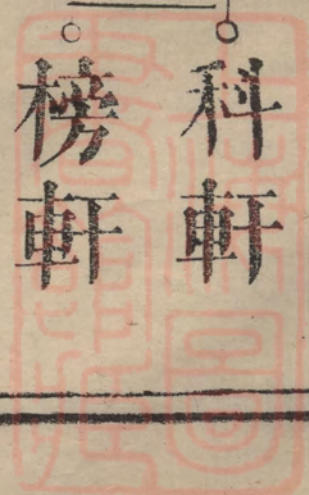 科軒
榜軒